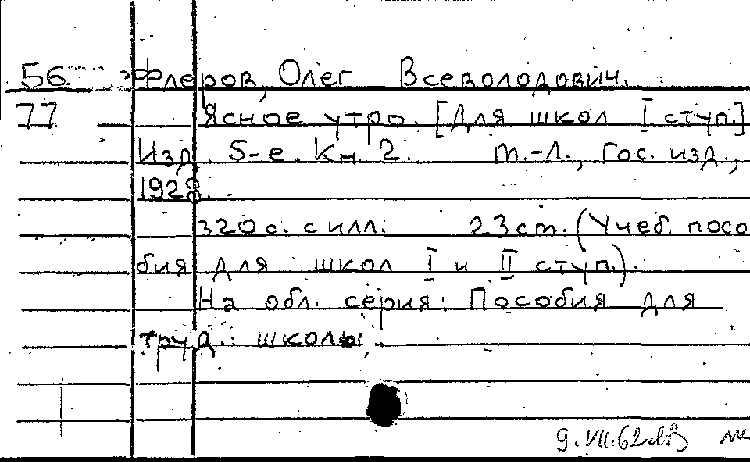 56 Флеров, Олег Всеволодович.
77 Ясное утро. [Для школ I ступ.]
Изд. 5-е. Кн. 2. М.-Л., Гос. изд.,
1928.
320 с. с илл. 23 см. (Учеб. посо
бия для школ I и II ступ.).
На обл. серия: Пособия для
труд. школы.
9.VII.62